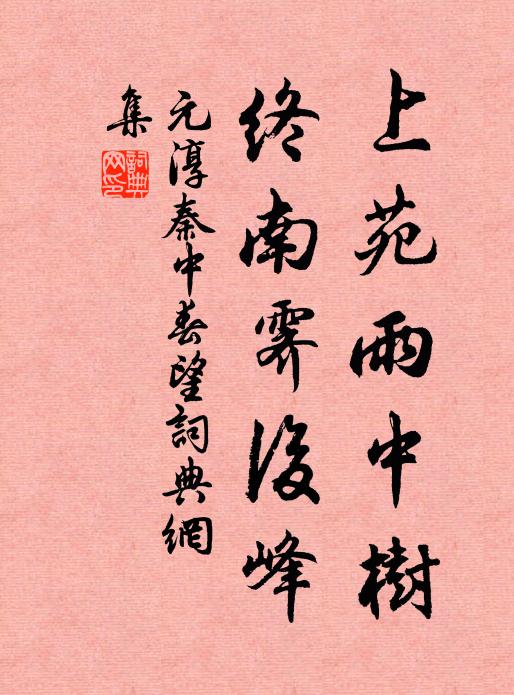 上苑雨中樹
終南霽後峰
元淳秦中春望詞典網
集
詞典
网印